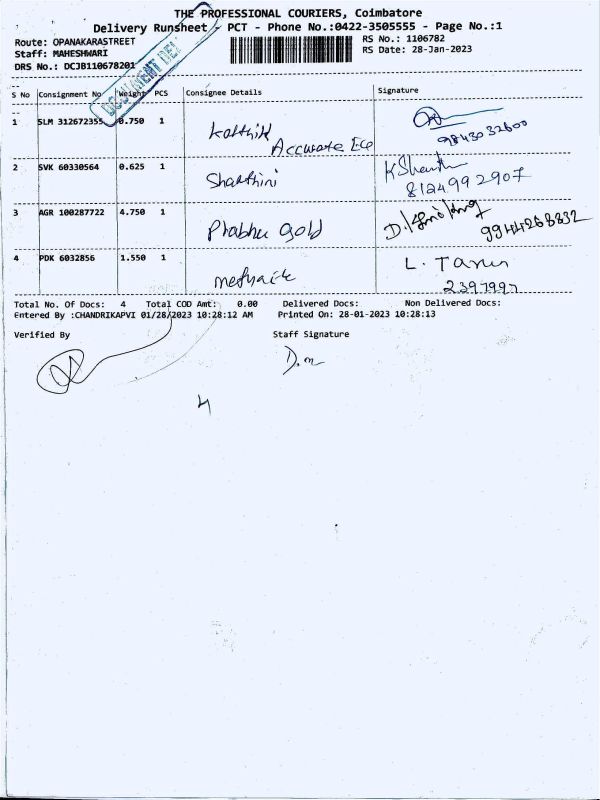 THE PROFESSIONAL COURIERS, Coimbatore
Delivery Runsheet - PCT - Phone No.:0422-3505555 - Page No.:1
Route: OPANAKARASTREET
RS No.: 1106782
Staff: MAHESHWARI
RS Date: 28-Jan-2023
DRS No.: DCJB110678201
DOCUMENT DEL
S No Consignment No Weight PCS Consignee Details Signature
1 SLM 312672355 0.750 1 Karthik
Accurate 9843032600
2 SVK 60330564 0.625 1 Sharthini K Shanthi
8124992907
3 AGR 100287722 4.750 1 Prabhu Gold
4 PDK 6032856 1.550 1 L. Tarun
2397997
Total No. Of Docs: 4 Total COD Amt: 0.00 Delivered Docs: Non Delivered Docs:
Entered By :CHANDRIKAPVI 01/28/2023 10:28:12 AM Printed On: 28-01-2023 10:28:13
Verified By Staff Signature
D.m
4